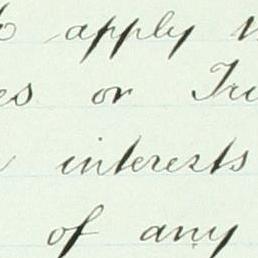 apply
es or Tru
interests
of any